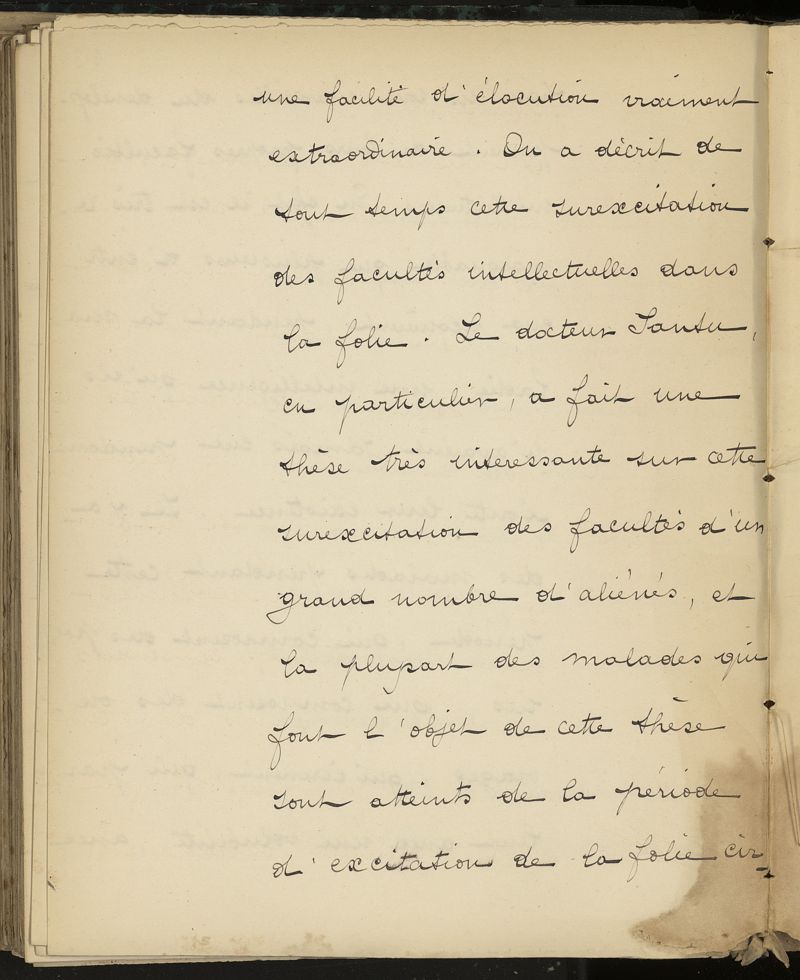 une facilité d'élocution vraiment
extraordinaire. On a décrit de
tout temps cette surexcitation
des facultés intellectuelles dans
la folie. Le docteur Santu,
en particulier, a fait une
thèse très intéressante sur cette
surexcitation des facultés d'un
grand nombre d'aliénés, et
la plupart des malades qui
font l'objet de cette thèse
sont atteints de la période
d'excitation de la folie cir-